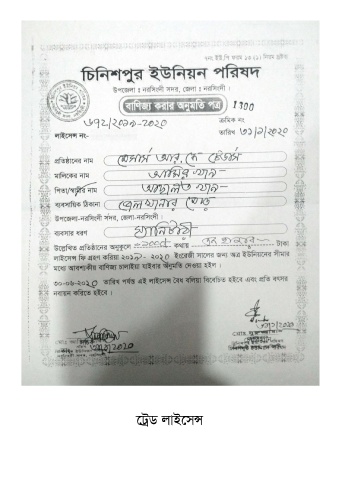 চিনিশপুর ইউনিয়ন পরিষদ
উপজেলা : নরসিংদী সদর, জেলা : নরসিংদী।
বাণিজ্য করার অনুমতি পত্র
1700
৬৭২/২০১৯-২০২০
ক্রমিক নং
লাইসেন্স নং-
তারিখ ৩১/১/২০২০
প্রতিষ্ঠানের নাম মেসার্স আর, কে ট্রেডার্স
মালিকের নাম আমির খান
পিতা/স্বামীর নাম আছালত খান
ব্যবসায়িক ঠিকানা জেলখানার মোড়
উপজেলা-নরসিংদী সদর, জেলা-নরসিংদী।
ব্যবসার ধরণ স্যানিটারী
উল্লেখিত প্রতিষ্ঠানের অনুকূলে কথায় টাকা
লাইসেন্স ফি গ্রহণ করিয়া ২০১৯- ২০২০ ইংরেজী সালের জন্য অত্র ইউনিয়নের সীমার
মধ্যে আবশ্যকীয় বাণিজ্য চালাইয়া যাইবার অনুমতি দেওয়া হইল।
৩০-০৬-২০২০ তারিখ পর্যন্ত এই লাইসেন্স বৈধ বলিয়া বিবেচিত হইবে এবং প্রতি বৎসর
নবায়ন করিতে হইবে।
ট্রেড লাইসেন্স